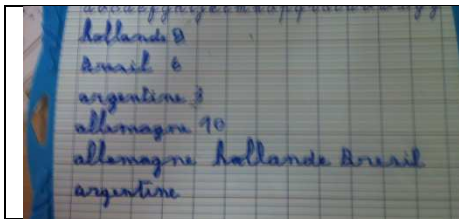 hollande 8
Bresil 6
argentine 8
allemagne 10
allemagne hollande Bresil
argentine